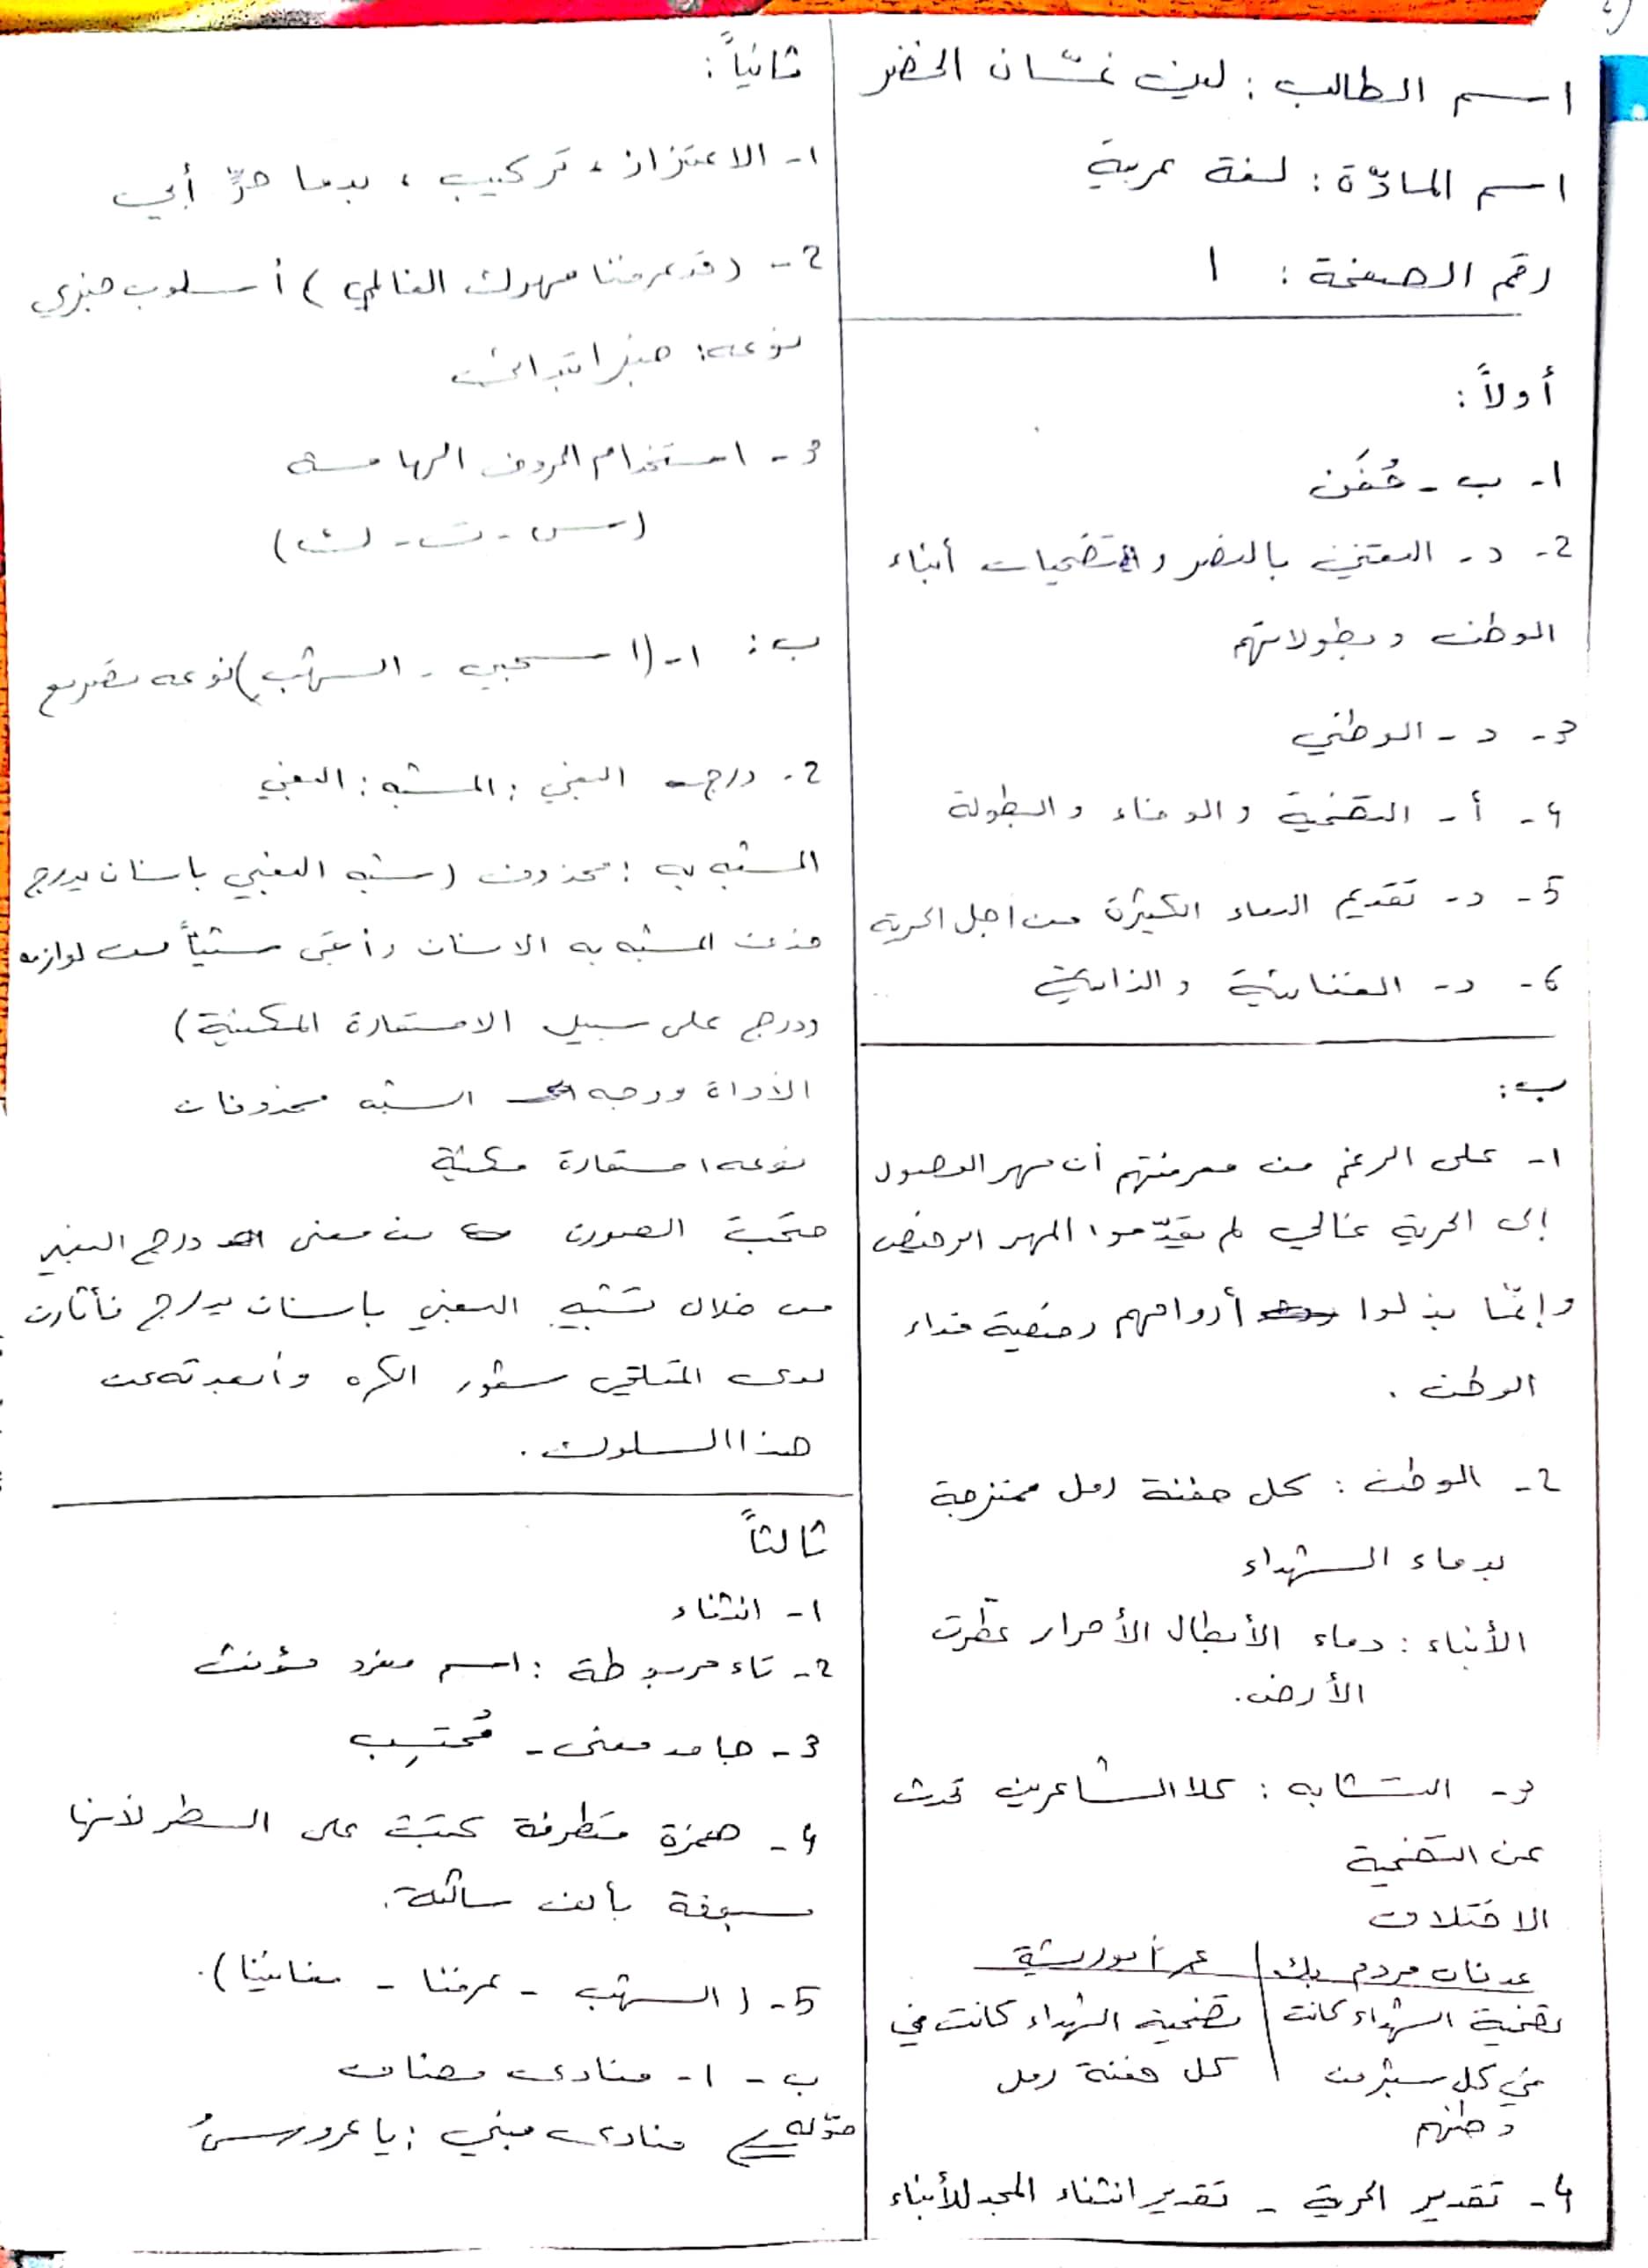 اسم الطالب : ليث غسّان الخضر
اسم المادّة : لغة عربية
رقم الصفحة : ١
أولاً :
١- ب - حُفَن
2- د - التغني بالنصر وتضحيات أبناء
الوطن وبطولاتهم
3- د - الوطني
4- أ - التضحية والوفاء والبطولة
5- د - تقديم الدماء الكثيرة من اجل الحرية
6- د - الغنائية والذاتية
ب :
١- على الرغم من معرفتهم أن مهر الوصول
إلى الحرية غالي لم يقدّموا المهر الرخيص
وإنّما بذلوا أرواحهم رخيصة فداء
الوطن .
2- الوطن : كل حفنة رمل ممتزجة
بدماء الشهداء
الأبناء : دماء الأبطال الأحرار عطّرت
الأرض.
3- التشابه : كلا الشاعرين تحدث
عن التضحية
الاختلاف
عدنان مردم بك | عمر أبو ريشة
تضحية الشهداء كانت | تضحية الشهداء كانت في
في كل شبر من | كل حفنة رمل
وطنهم
4- تقدير الحرية - تقدير انثناء المجد للأبناء
ثانياً :
١- الاعتزاز ، تركيب ، بدما حرٍّ أبي
2- (قد عرفنا مهرك الغالي) أسلوب خبري
نوعه: خبر ابتدائي
3- استخدام الحروف الهامسة
(س - ت - ك)
ب : ١- (اسحبي - الشهب) نوعه تصريع
2- درج البغي : المشبه : البغي
المشبه به : محذوف (شبه البغي بإنسان يدرج
حذف المشبه به الانسان وأبقى شيئاً من لوازمه
ودرج على سبيل الاستعارة المكنية)
الأداة ووجه الشبه محذوفات
نوعه استعارة مكنية
الصورة من معنى درج البغي
من خلال تشبيه البغي بإنسان يدرج فأثارت
لدى المتلقي شعور الكره وأبعدته عن
هذا السلوك .
ثالثاً
١- انثناء
2- تاء مربوطة : اسم مفرد مؤنث
3- جامد معنى - مُحتسِب
4- همزة متطرفة كتبت على السطر لأنها
سبقة بألف ساكنة.
5- (الشهب - عرفنا - مغانينا).
ب - ١- منادى مضاف
حوّله منادى مبني : يا عروسُ